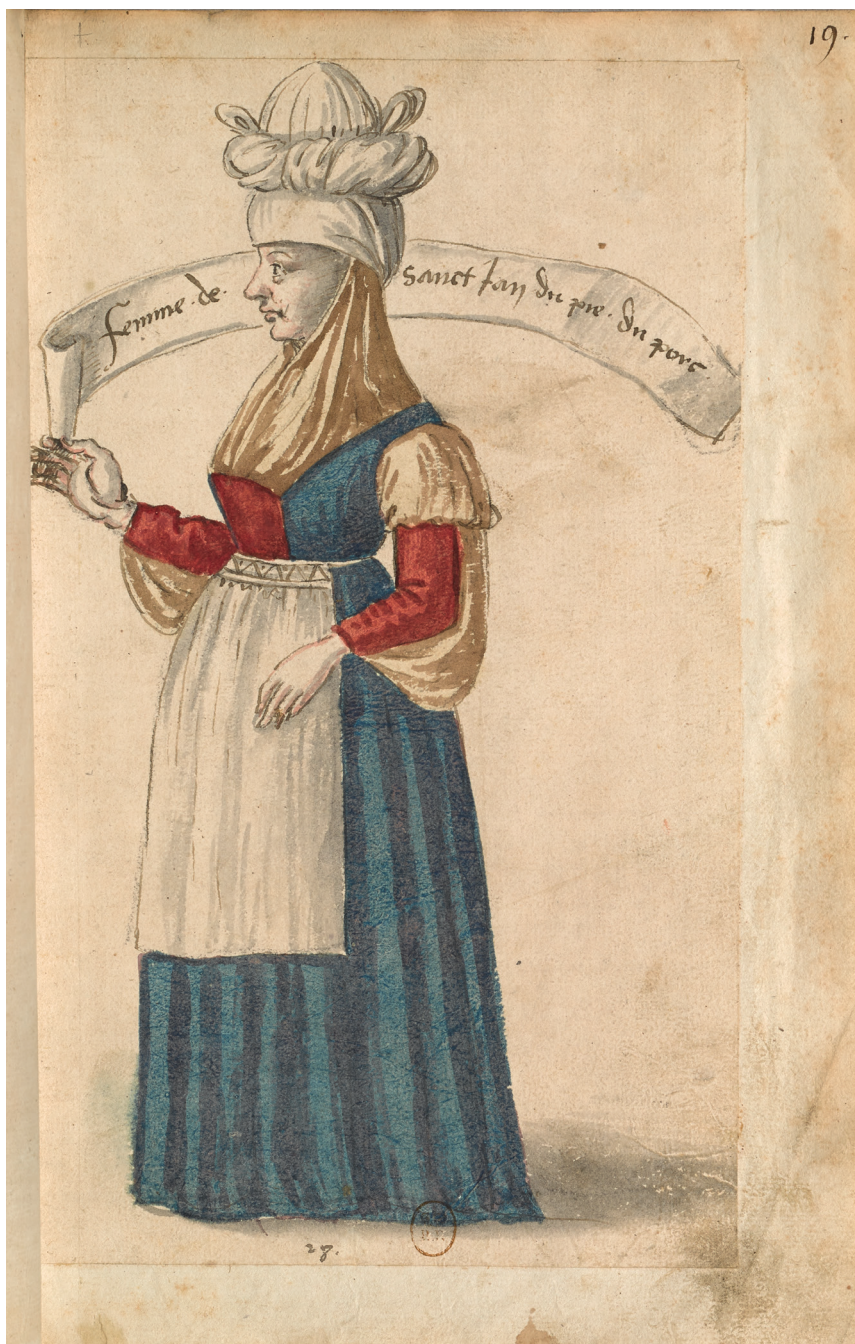 19.
femme de sanct Jan du pie du porc
28.